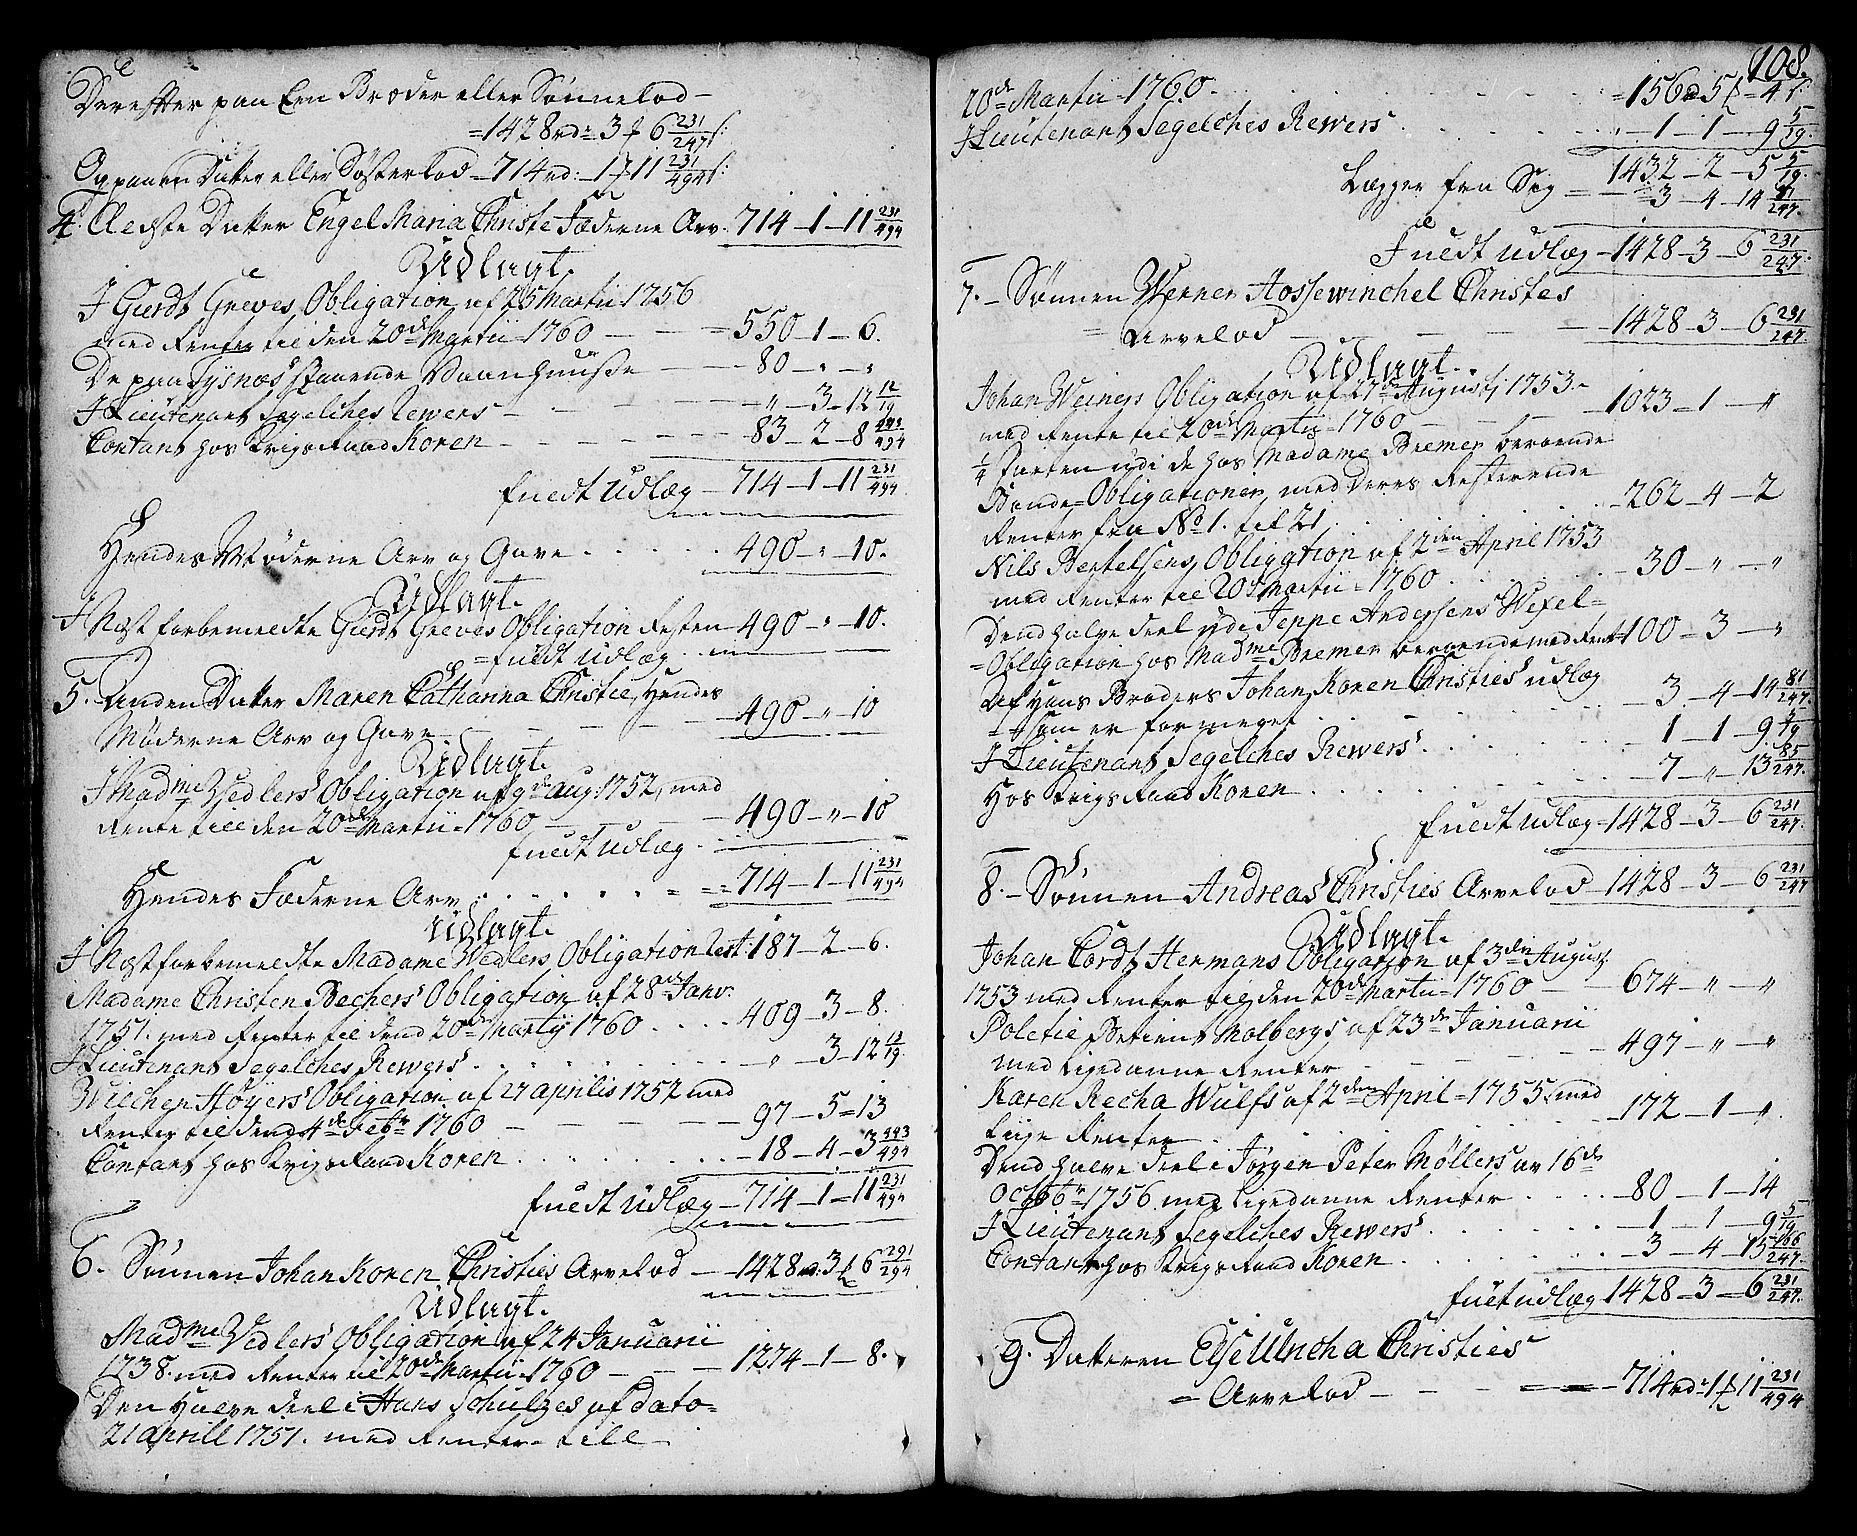 Derefter paa Een Broder eller Sønnelod –
= 1428 rd: 3 ƒ 6 231/247 s:
Og paa en Datter eller Søsterlod – 714 rd: – 1 ƒ 11 231/494 s:
4. Ældste Datter Engel Maria Christie Fæderne Arv. 714 – 1 – 11 231/494
Udlagt.
I Giert Greves Obligation af 25 Martii 1756
med Renter til den 20de Martii 1760 – – – 550 – 1 – 6.
De paa Tysnæs staaende Vaanhuuße – – – 80 – „ – „
I Lieutenant Segelches Revers – – – – „ – 3 – 12 12/19
Contant hos Krigs Raad Koren – – – – 83 – 2 – 8 443/494
fuldt Udlæg – 714 – 1 – 11 231/494
Hendes Møderne Arv og Gave . . . . . 490 – „ – 10.
Udlagt.
I Næst forbemeldte Giert Greves Obligation Resten – 490 – „ – 10.
= fuldt Udlæg
5. Anden Datter Maren Cathanna Christie, Hendes
Møderne Arv og Gave – – – – 490 – „ – 10
Udlagt.
I Madme Vedlers Obligation af 9de aug 1752, med
Rente till den 20de Martii 1760 – – – 490 – „ – 10
fuldt udlæg
Hendes Fæderne Arv . . . . . = = 714 – 1 – 11 231/494
Udlagt.
I Næstforbemeldte Madame Vedlers Obligation Rest: 187 – 2 – 6.
Madame Christen Bechers Obligation af 28de Janv:
1751. med Renter til dend 20de Martij 1760 . . . . 409 – 3 – 8.
I Lieutenant Segelches Revers . . . . . „ – 3 – 12 12/19.
Wilchen Høyers Obligation af 27 aprilis 1752 med
Renter til dend 4de Febr 1760 – – – 97 – 5 = 13
Contant hos Krigs Raad Koren . . . . . – 18 – 4 – 3 443/494
fuldt Udlæg – 714 – 1 – 11 231/494
6. Sønnen Johan Koren Christies Arvelod – 1428 rd. 3 ƒ 6 291/294
Udlagt.
Madme Vedlers Obligation af 24 Januarii
1738. med Renter til 20de Martii 1760 – – – 1274 – 1 – 8.
Den halve deel i Hans Schulzes af dato =
21 aprill 1751. med Renter – till –
108.
20de Martii 1760. . . . . . = 156 rd 5 ƒ = 4 s:
I Lieutenant Segelches Revers . . . . „ – 1 – 1 – 9 5/19.
1432 – 2 – 5 5/19.
Lægger fra Sig = – 3 – 4 – 14 81/247.
Fuldt udlæg – 1428 – 3 – 6 231/247.
7. – Sønnen Werner Hossewinchel Christies
= Arvelod – – – – 1428 – 3 – 6 231/247.
Udlagt.
Johan Weiners Obligation af 27de Augusti 1753 –
med Rente til 20de Martii 1760 – – – 1023 – 1 – „
1/4 Parten udi de hos Madame Bremer beroende
Bonde = Obligationer, med Deres Resterende
Renter fra No 1. til 21 . . . . . 262 – 4 – 2
Nils Bertelsens Obligation af 2den April 1753
med Renter til 20de Martii 1760 . . . . – 30 – „ – „
Dend halve deel udi Jeppe Andersens Wexel =
= Obligation hos Madme Bremer beroende med Rent = 100 – 3 – „
Af Hans Broders Johan Koren Christies udlæg
som er for meget . . . . . – 3 – 4 – 14 81/247.
I Lieutenant Segelches Revers . . . . – 1 – 1 – 9 5/19.
Hos Krigs Raad Koren . . . . . – 7 – „ – 13 85/247.
fuldt udlæg – 1428 – 3 – 6 231/247.
8. – Sønnen Andreas Christies Arvelod – 1428 – 3 – 6 231/247
Udlagt.
Johan Cordt Hermans Obligation af 3den August
1753 med Renter til den 20de Martii 1760 – 674 – „ – „
Poletie Betient Molbergs af 23de Januarii
med ligedanne Renter – – – – 497 – „ – „
Karen Recha Wulfs af 2den April 1755. med
liige Renter . . . . . – 172 – 1 – „
Dend halve deel i Jørgen Peter Møllers av 16de
Octobr 1756 med ligedanne Renter . . . . – 80 – 1 – 14
I Lieutenant Segelches Revers . . . . – 1 – 1 – 9 5/19
Contant hos Krigs Raad Koren . . . . – 3 – 4 – 13 166/247.
fult udlæg 1428 – 3 – 6 231/247.
9. Datteren Else Ulricha Christies
= Arvelod – – – – 714 rd: 1 ƒ 11 231/494